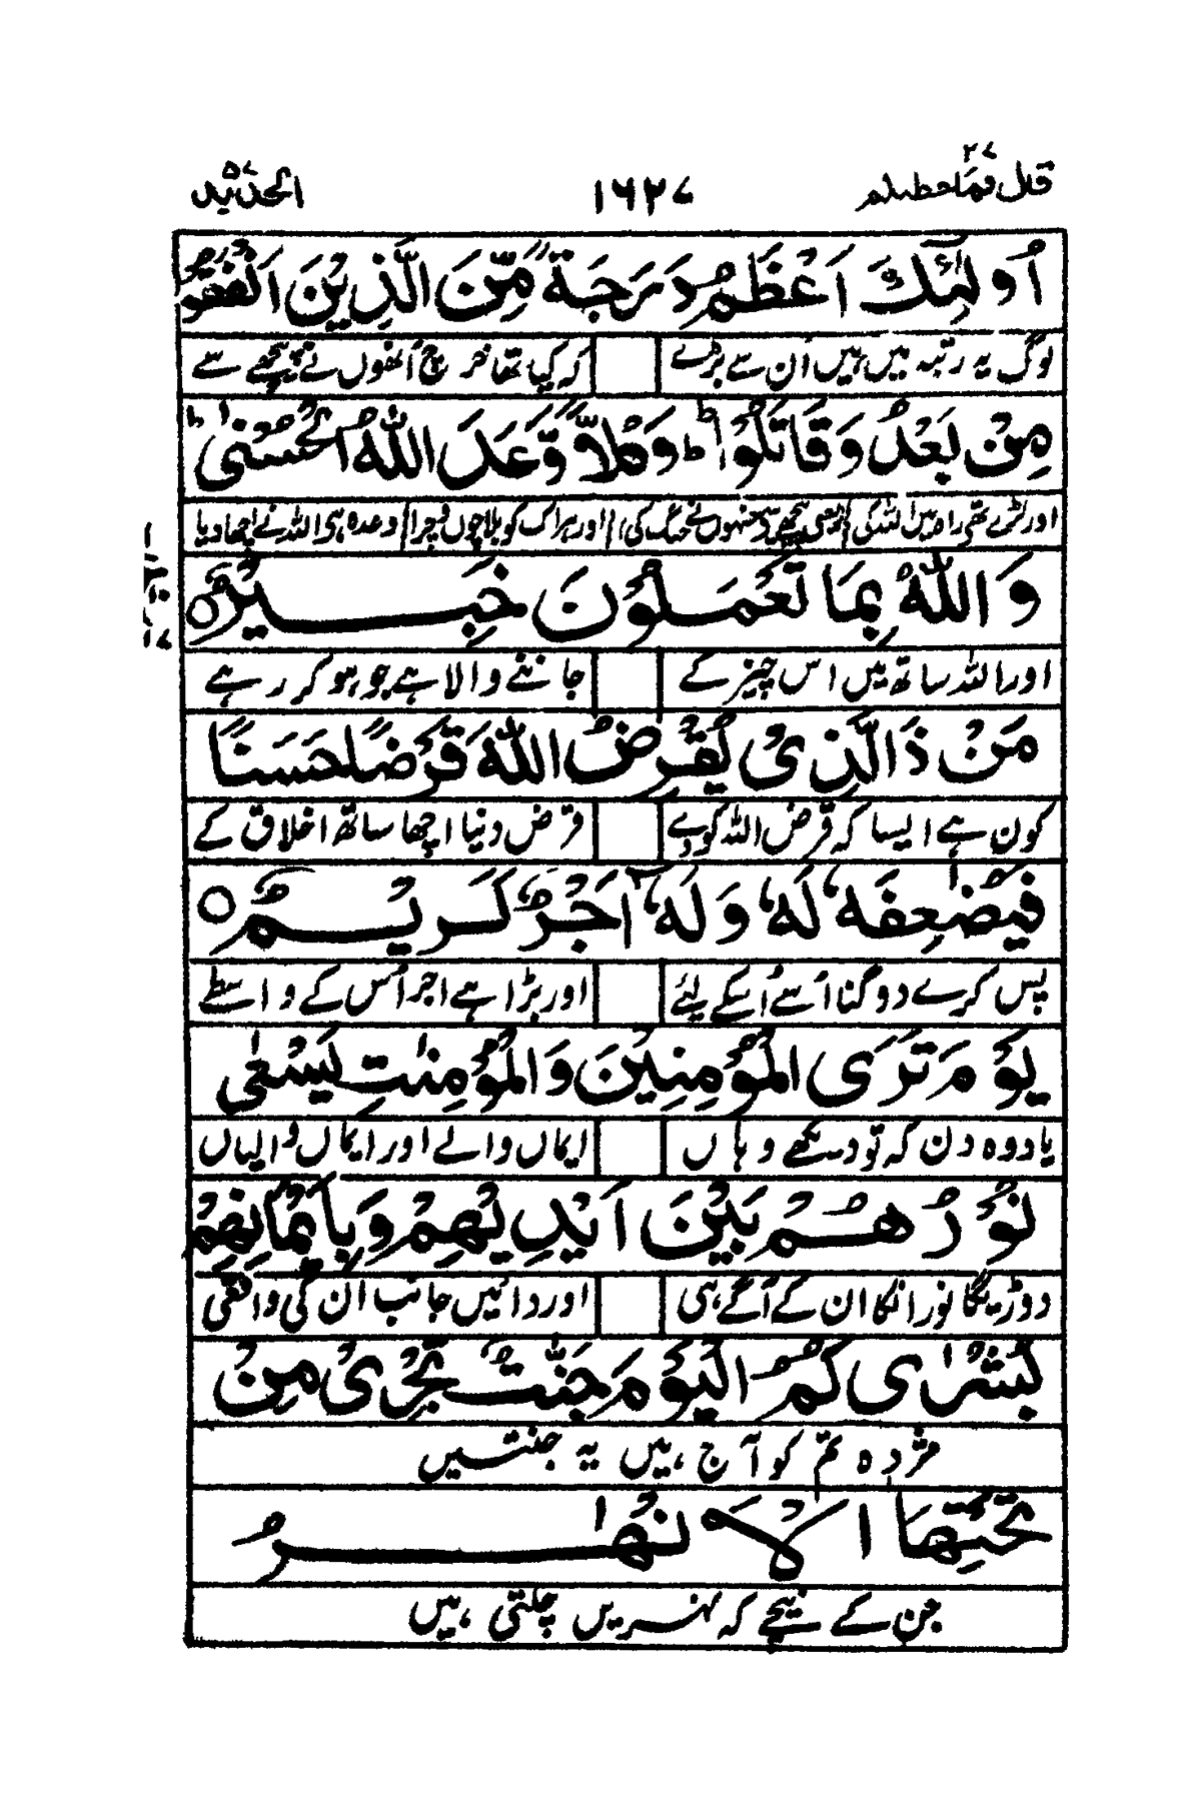 قال فما خطبكم ۲۷
۱۶۲۷
الحدید ۵۷
اُولٰٓئِكَ اَعْظَمُ دَرَجَةً مِّنَ الَّذِيْنَ اَنْفَقُوْا
لوگ یہ رتبہ میں ہیں اُن سے بڑے کہ کیا تھا خرچ اُنھوں نے پیچھے سے
مِنْۢ بَعْدُ وَقَاتَلُوْا ؕ وَكُلًّا وَّعَدَ اللّٰهُ الْحُسْنٰى ؕ
اور لڑے تھے راہ میں اللہ کی جنہوں نے جنگ کی اور ہر اک کو بلا چوں و چرا وعدہ ہی اللہ نے اچھا دیا
وَاللّٰهُ بِمَا تَعْمَلُوْنَ خَبِيْرٌ ○
اور اللہ ساتھ میں اس چیز کے جاننے والا ہے جو ہو کر رہے
مَنْ ذَا الَّذِىْ يُقْرِضُ اللّٰهَ قَرْضًا حَسَنًا
کون ہے ایسا کہ قرض اللہ کو دے قرض دنیا اچھا ساتھ اخلاق کے
فَيُضٰعِفَهٗ لَهٗ وَلَهٗۤ اَجْرٌ كَرِيْمٌ ○
پس کرے دوگنا اُسے اُسکے لئے اور بڑا ہے اجر اُس کے واسطے
يَوْمَ تَرَى الْمُؤْمِنِيْنَ وَالْمُؤْمِنٰتِ يَسْعٰى
یادوہ دن کہ تو دیکھے وہاں ایماں والے اور ایماں والیاں
نُوْرُهُمْ بَيْنَ اَيْدِيْهِمْ وَبِاَيْمَانِهِمْ
دوڑیگا نور انکا ان کے آگے ہی اور دائیں جانب ان کی واقعی
بُشْرٰىكُمُ الْيَوْمَ جَنّٰتٌ تَجْرِىْ مِنْ
مژدہ تم کو آج ہیں یہ جنتیں
تَحْتِهَا الْاَنْهٰرُ
جن کے نیچے کہ نہریں چلتی ہیں